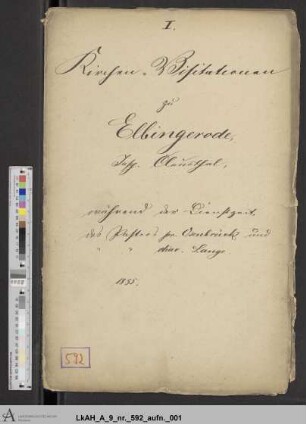 I.
Kirchen-Visitationen
zu
Elbingerode,
Insp. Clausthal,
während der Dienstzeit
des Pastors pr. Osnbrück und
" " diac. Lange
1855.
592
LkAH_A_9_nr._592_aufn._001